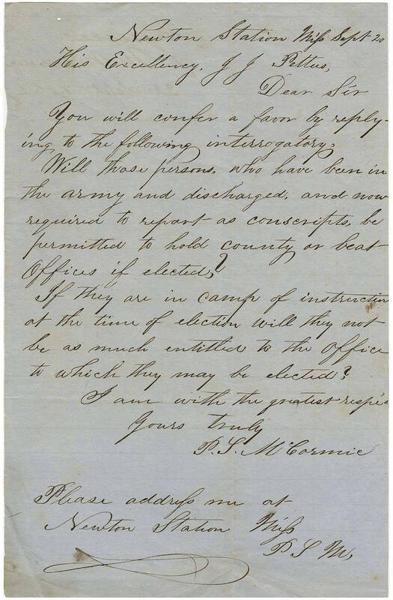 Newton Station Miss Sept 20
His Excellency, J J Pettus,
Dear Sir
You will confer a favor by reply-
ing to the following interrogatory.
Will those persons, who have been in
the army and discharged, and now
required to report as conscripts, be
permitted to hold county or beat
Offices if elected?
If they are in camp of instruction
at the time of election will they not
be as much entitled to the Office
to which they may be elected?
I am with the greatest respec
Yours truly
P. S. McCormic
Please address me at
Newton Station Miss
P S M,